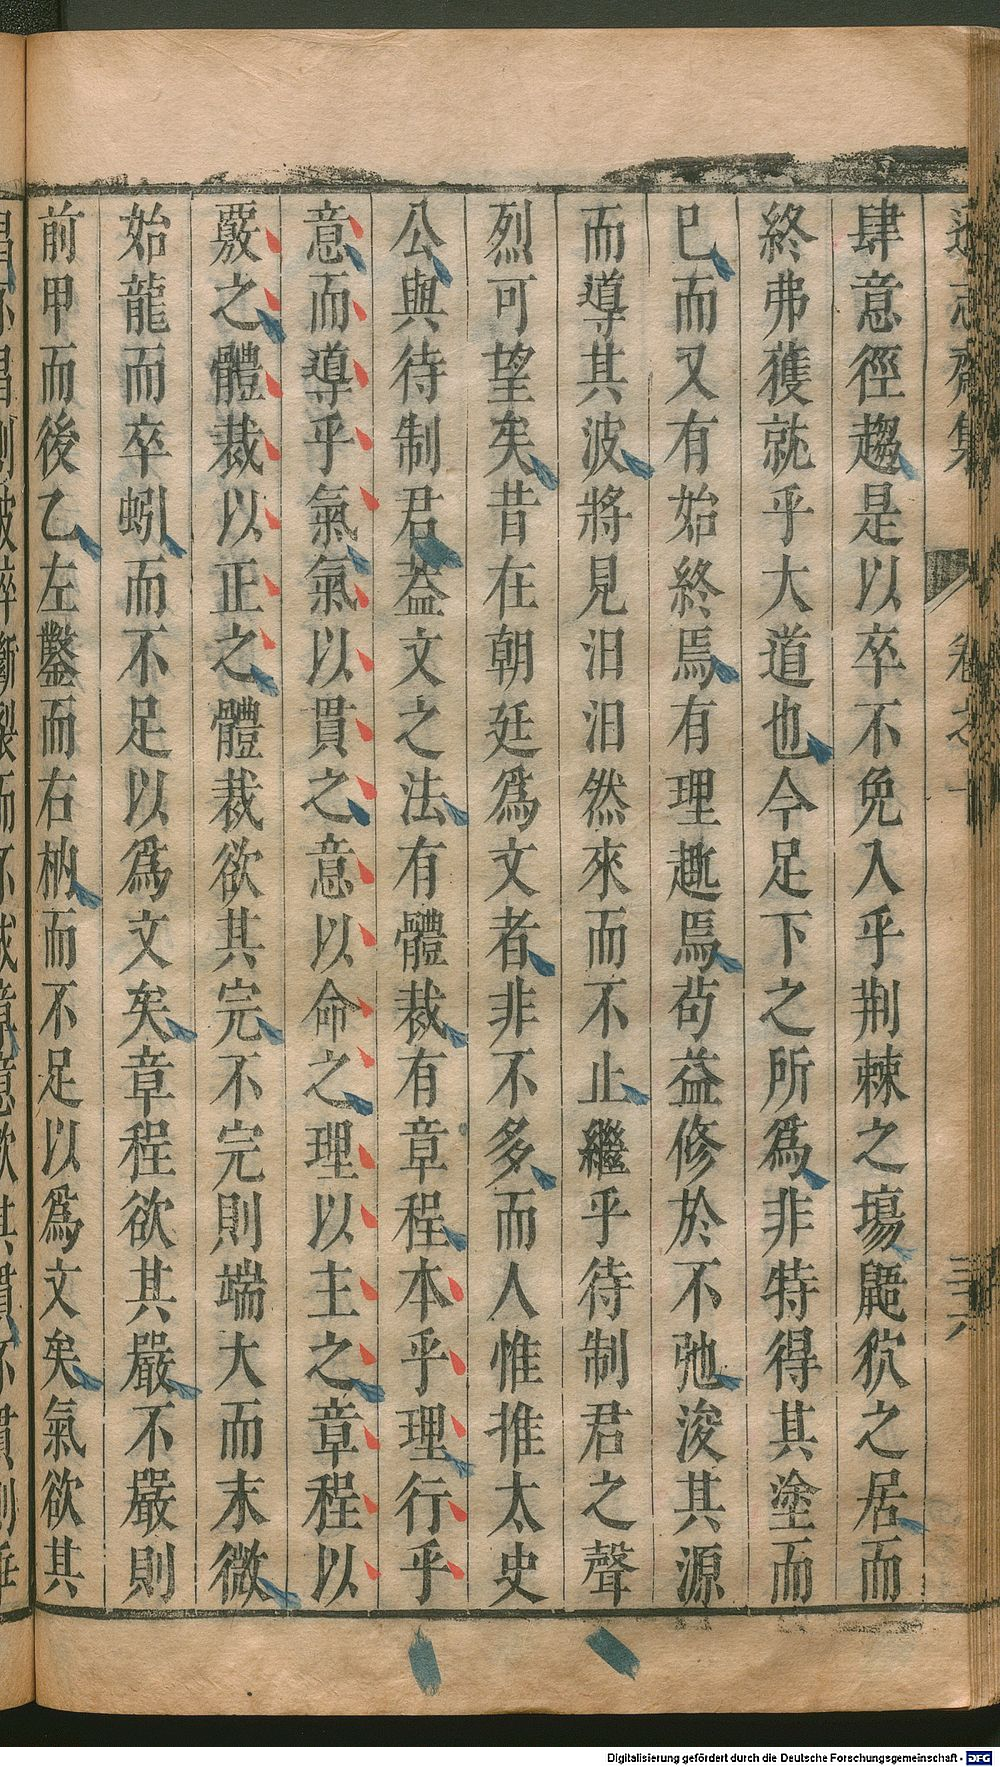 遜志齋集 卷之十 三六
肆意徑趨是以卒不免入乎荆棘之塲鼯狖之居而
終弗獲就乎大道也今足下之所爲非特得其塗而
已而又有始終焉有理趣焉苟益修於不弛浚其源
而導其波將見汨汨然來而不止繼乎待制君之聲
烈可望矣昔在朝廷爲文者非不多而人惟推太史
公與待制君葢文之法有體裁有章程本乎理行乎
意而導乎氣氣以貫之意以命之理以主之章程以
覈之體裁以正之體裁欲其完不完則端大而末微
始龍而卒蚓而不足以爲文矣章程欲其嚴不嚴則
前甲而後乙左鑿而右枘而不足以爲文矣氣欲其
Digitalisierung gefördert durch die Deutsche Forschungsgemeinschaft - DFG